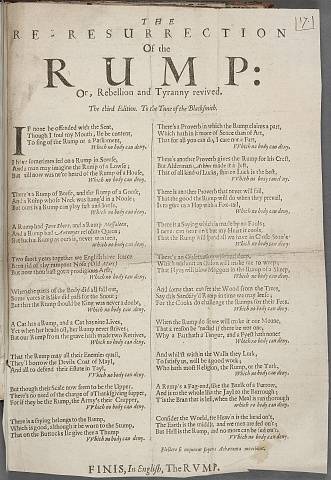 17.
THE
RE-RESURRECTION
Of the
RUMP:
Or, Rebellion and Tyranny revived.
The third Edition. To the Tune of the Blacksmith.
IF none be offended with the Scent,
Though I foul my Mouth, Ile be content,
To sing of the Rump of a Parliament,
Which no body can deny.
I have sometimes fed on a Rump in Sowse,
And a man may imagine the Rump of a Lowse;
But till now was ne're heard of the Rump of a House,
Which no body can deny.
There's a Rump of Beefe, and the Rump of a Goose,
And a Rump whose Neck was hang'd in a Noose;
But ours is a Rump can play fast and loose,
Which no body can deny.
A Rump had Jane Shore, and a Rump Messaleen,
And a Rump had Antonies resolute Queen;
But such a Rump as ours is, never was seen,
Which no body can deny.
Two short years together we English have
Rump
But now thou hast got a prodigious Arse,
Which no body can deny.
When the parts of the Body did all fall out,
Some votes it is like did pass for the Snout;
But that the Rump should be King was never a doubt,
Which no body can deny.
A Cat has a Rump, and a Cat has nine Lives,
Yet when her heads off, her Rump never strives;
But our Rump from the grave hath made two Retrives,
Which no body can deny.
That the Rump may all their Enemies quail,
They borrow the Devils Coat of Mayl,
And all to defend their estate in Tayl,
Which no body can deny.
But though their Scale now seem to be the Upper,
There's no need of the charge of a Thanksgiving supper,
For if they be the Rump, the Army's their Crupper,
Which no body can deny.
There is a saying belongs to the Rump,
Which is good, although it be worn to the Stump,
That on the Buttocks Ile give thee a Thump
Which no body can deny.
There's a Proverb in which the Rump claimes a part,
Which hath in it more of Sence than of Art,
That for all you can do, I care not a Fart,
Which no body can deny.
There's another Proverb gives the Rump for his Crest,
But Alderman Atkins made it a Jest,
That of all kind of Lucks, shitten Luck is the best,
Which no body can deny.
There is another Proverb that never will fail,
That the good the Rump will do when they prevail,
Is to give us a Flap with a Fox-tail,
Which no body can deny.
There is a Saying which is made by no Fools,
I never can hear on't but my Heart it cools,
That the Rump will spend all we have in Close-stools
Which no body can deny.
There's an
in Colliers will make me to weep,
That Flyes will blow Maggots in the Rump of a Sheep,
Which no body can deny.
And some that can see the Wood from the Trees,
Say this Sanctify'd Rump in time we may leese;
For the Cooks do challenge the Rumps for their Fees.
Which no body can deny.
When the Rump do sit we will make it our Moane,
That a reason be 'nacted if there be not one,
Why a Fart hath a Tongue, and a Fyest hath none?
Which no body can deny.
And whil'st within the Walls they lurk,
To satisfy us, will be a good work;
Who hath most Religion, the Rump, or the Turk,
Which no body can deny.
A Rump's a Fag-end, like the Baulk of a Furrow,
And is to the whole like the Jayl to the Burrough;
'Tis the Bran that is left, when the Meal is run thorough
Which no body can deny.
Consider the World, the Heav'n is the head on't,
The Earth is the middle, and we men are fed on't;
But Hell is the Rump, and no more can be said on't.
Which no body can deny.
Flectere si nequeunt superos Acheronta movebunt.
FINIS, In English, The RUMP.